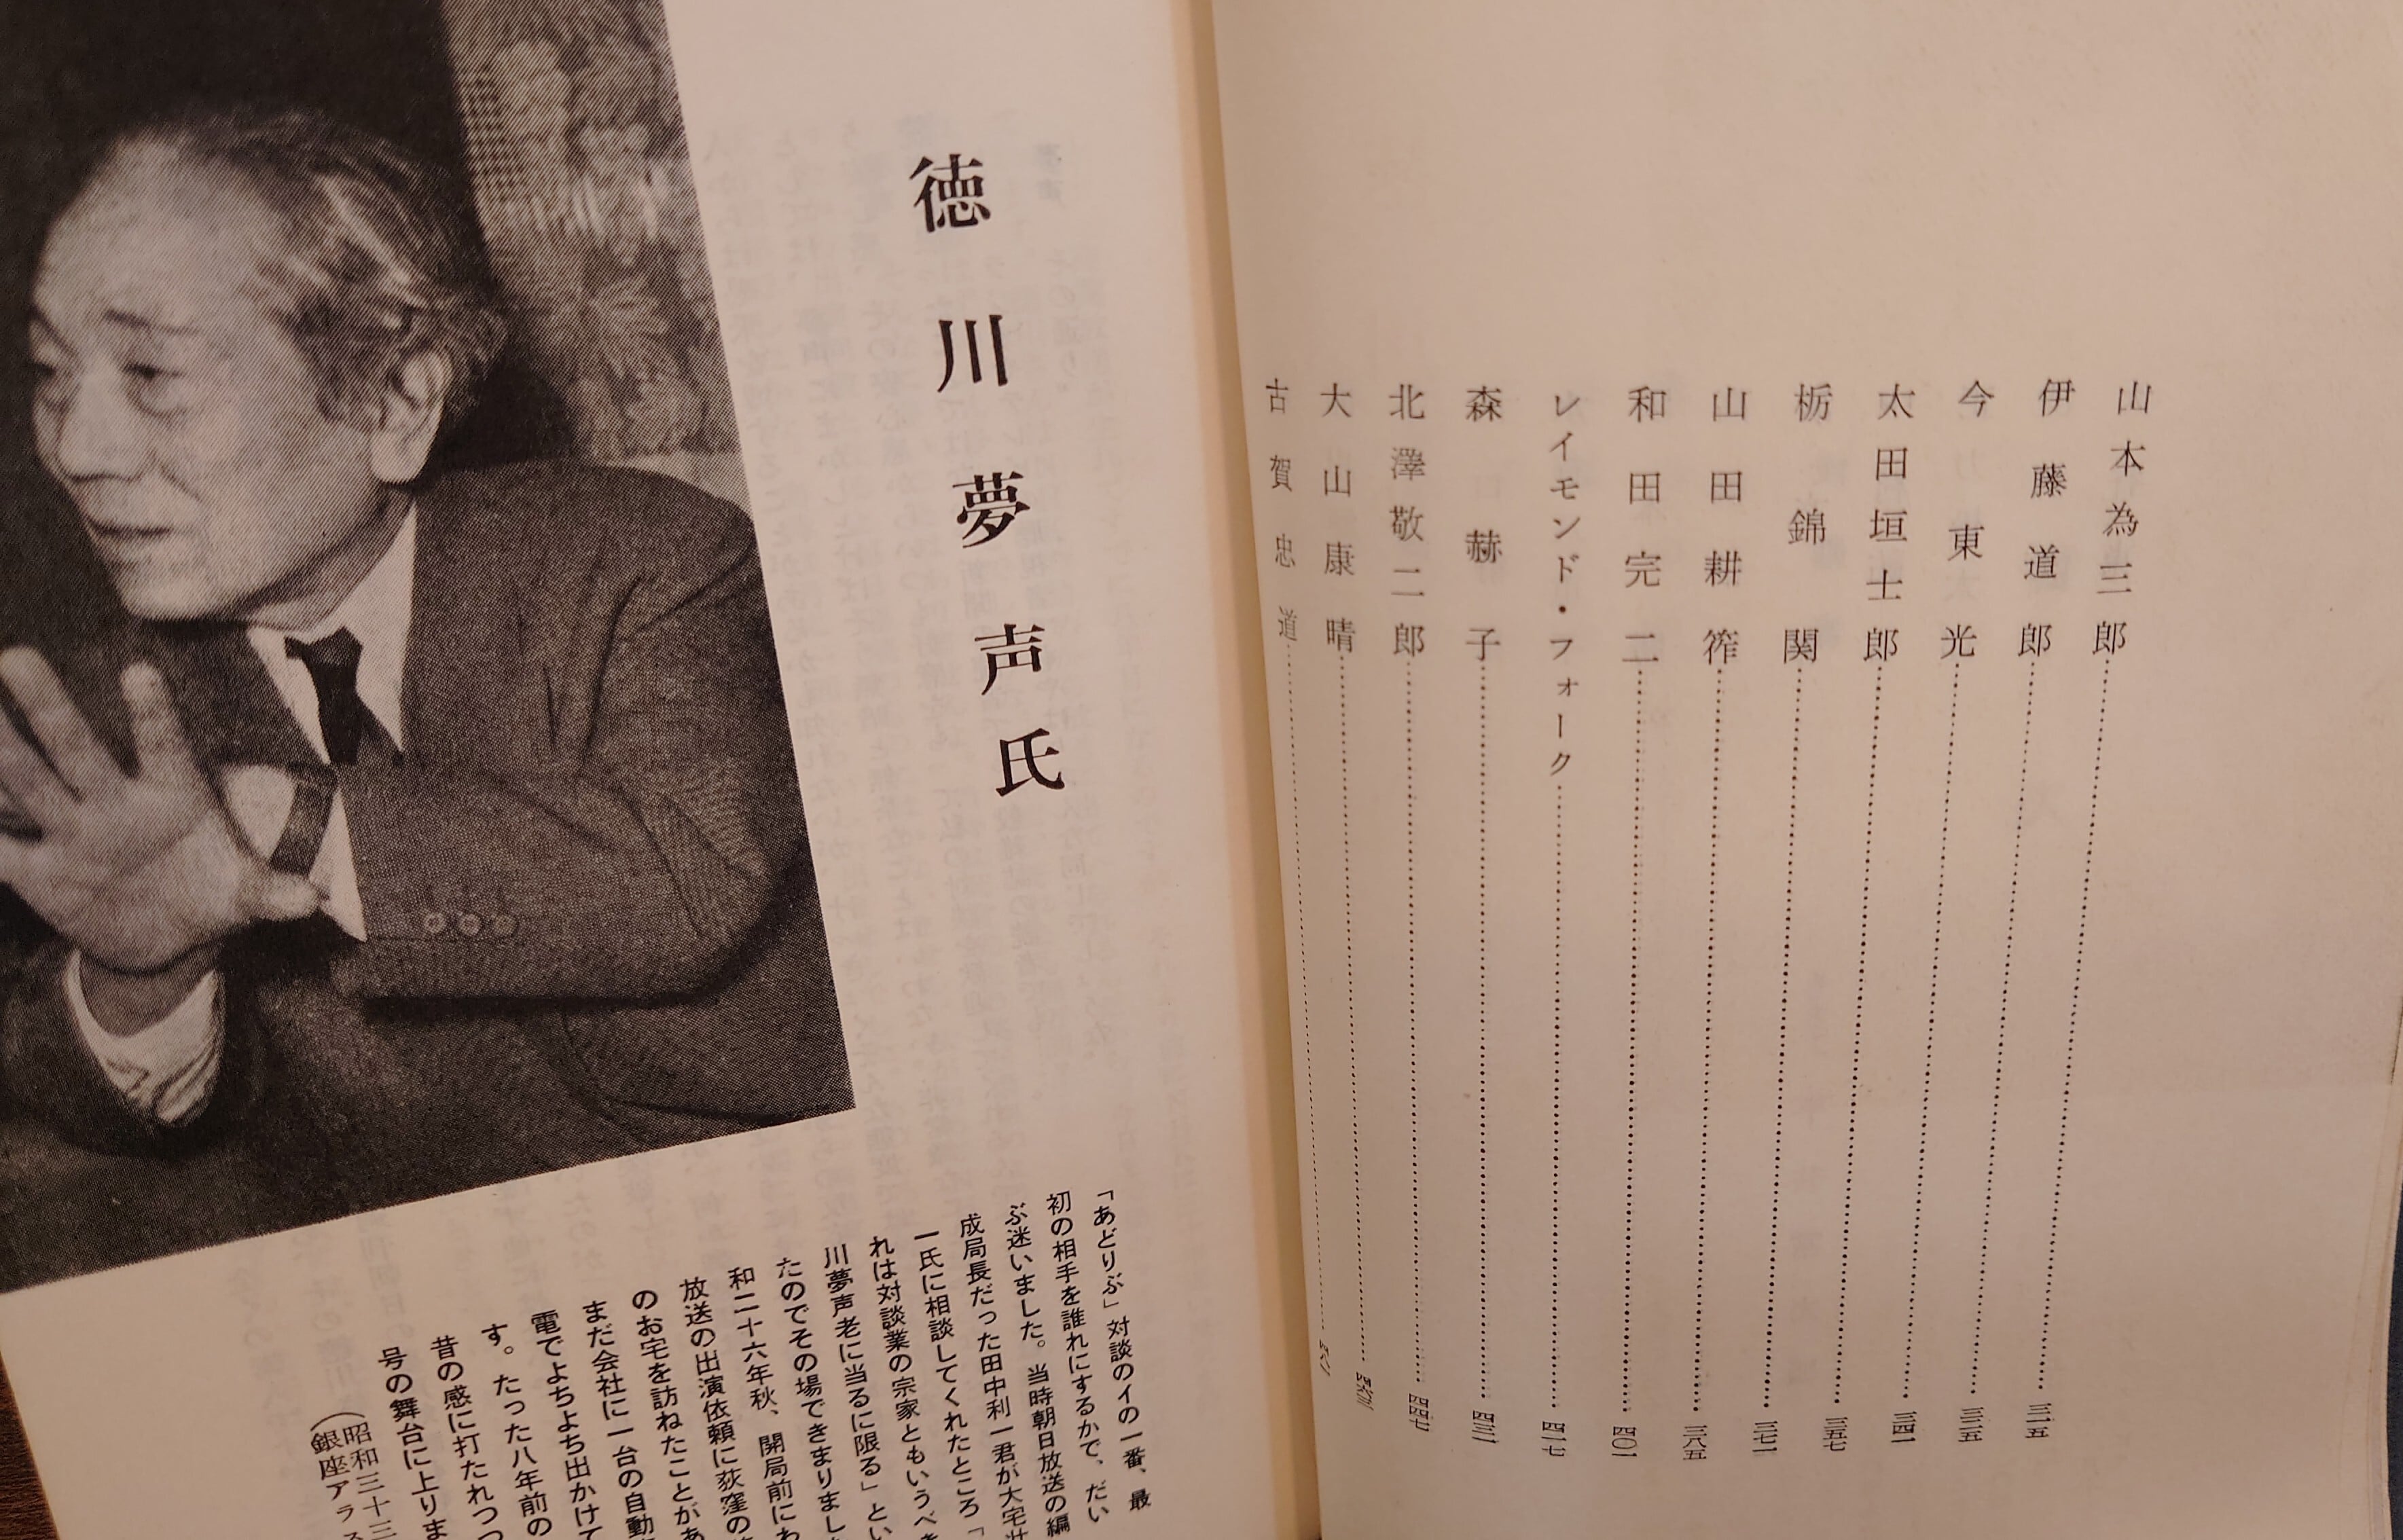 山本為三郎……三一五
伊藤道郎……三二五
今東光……三四一
太田垣士郎……三五七
栃錦関……三七一
山田耕筰……三八五
和田完二……四〇一
レイモンド・フォーク……四一七
森赫子……四三一
北澤敬二郎……四四七
大山康晴
古賀忠道
徳川夢声氏
「あどりぶ」対談のイの一番、最
初の相手を誰れにするかで、だい
ぶ迷いました。当時朝日放送の編
成局長だった田中利一君が大宅壮
一氏に相談してくれたところ「
れは対談業の宗家ともいうべき
川夢声老に当るに限る」とい
たのでその場できまりました
和二十六年秋、開局前にわ
放送の出演依頼に荻窪の
のお宅を訪ねたことがあ
まだ会社に一台の自動
電でよちよち出かけて
す。たった八年前の
昔の感に打たれつつ
号の舞台に上りま
(昭和三十三
(銀座アラス